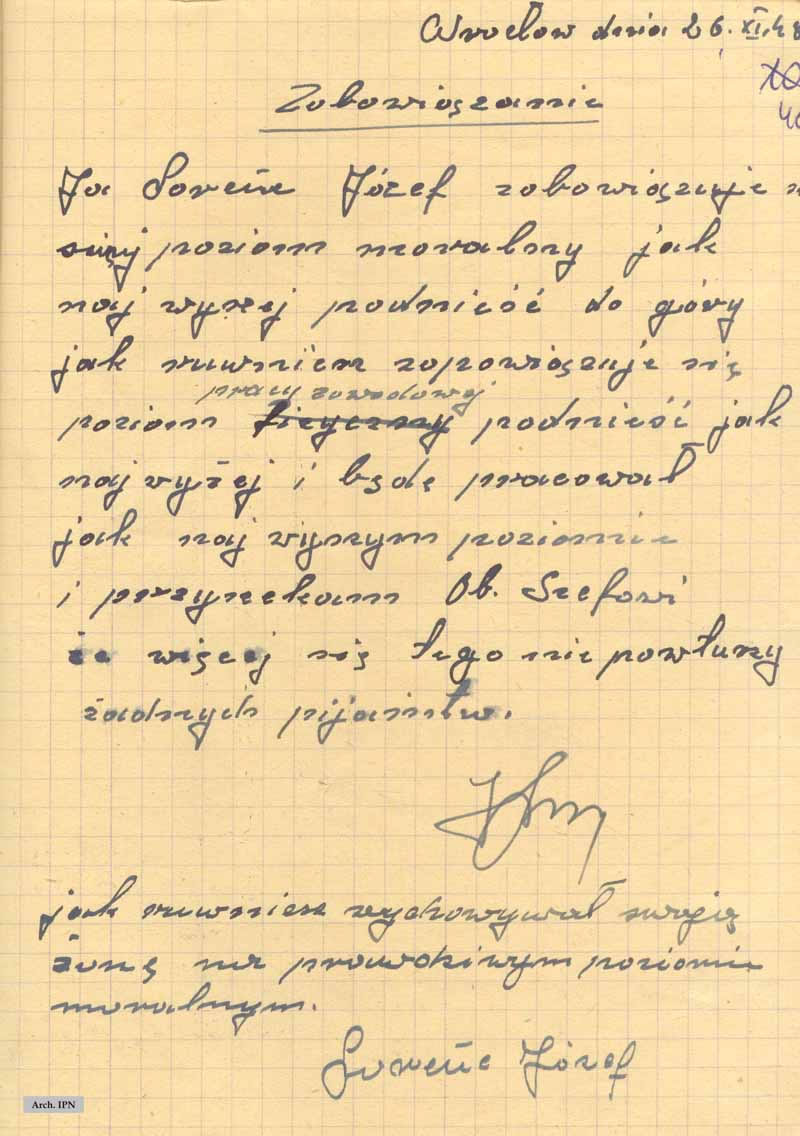 Wrocław dnia 26. XI. 48
Zobowiązanie
Ja Józef zobowiązuje
swuj poziom moralny jak
naj wyżej podnieść do góry
jak ruwnierz zopowiązuje się
pracy zawodowej
poziom fizyczny podnieść jak
naj wyżej i będę pracował
jak naj wyrzym poziomie
i przyrzekam Ob. Szefowi
że więcej się tego nie powtuży
żadnych pijaństw.
jak ruwnierz wychowywał swoją
żonę na prawdziwym poziomie
moralnym.
Józef
Arch. IPN